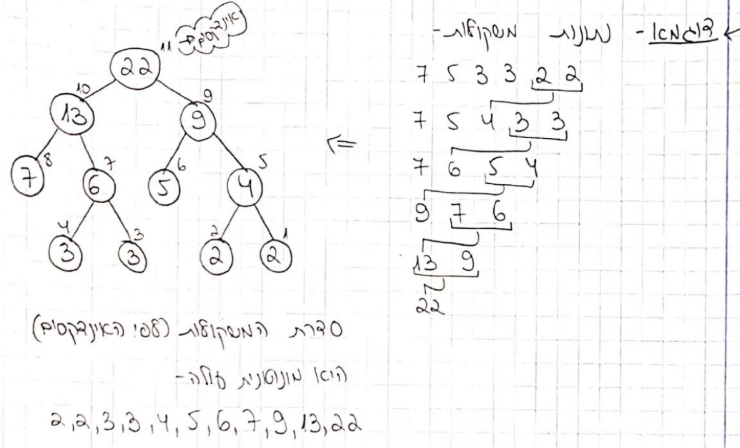 דוגמא - נתונות משקולות -
7 5 3 3 2 2
7 5 4 3 3
7 6 5 4
9 7 6
13 9
22
אינדקסים
11
22
10 9
13 9
8 7 6 5
7 6 5 4
4 3 2 1
3 3 2 2
סדרת המשקולות (לפי האינדקסים)
היא מונוטונית עולה -
2, 2, 3, 3, 4, 5, 6, 7, 9, 13, 22